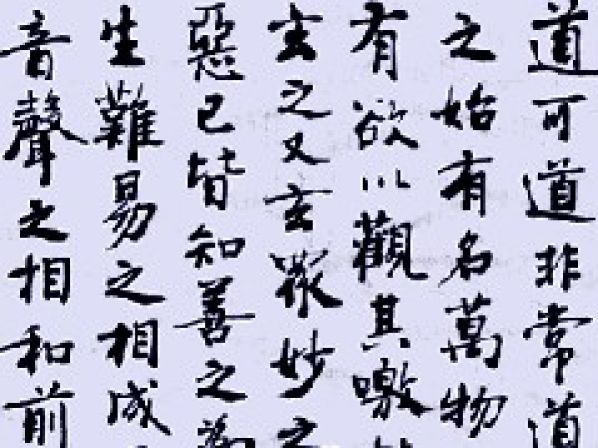 道可道非常道
之始有名萬物
有欲以觀其噭
玄之又玄眾妙之
惡已皆知善之為
生難易之相成
音聲之相和前